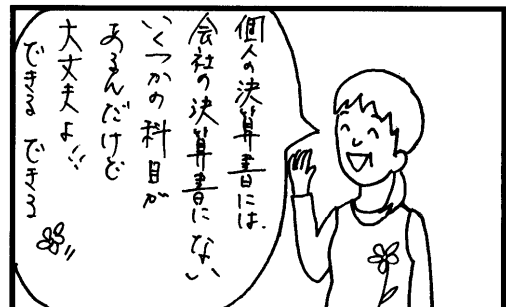 個人の決算書には、
会社の決算書にない
いくつかの科目が
あるんだけど
大丈夫よ!!
できる できる